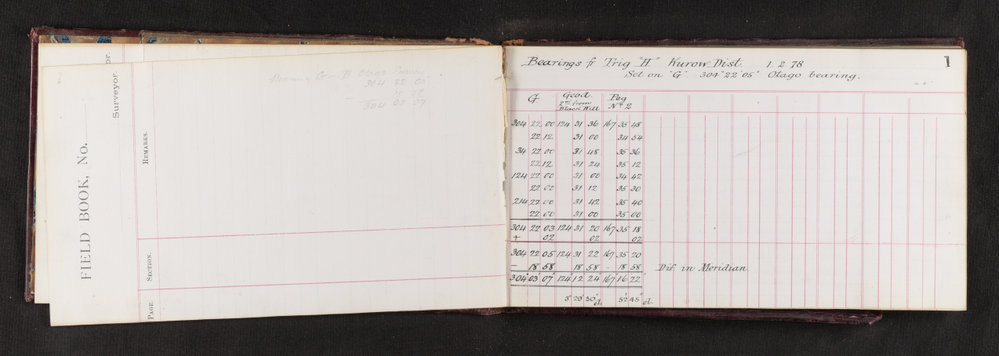 FIELD BOOK, No.
Surveyor.
or.
REMARKS.
SECTION.
PAGE
304 22 05
304 03 07
Bearings fr Trig "H" Kurow Dist. 1. 2. 78
1
Set on "G" 304° 22' 05" Otago bearing.
G Geod. Peg
2nd from No 2
Black Hill
304 22 00 124 31 36 167 35 48
22 12 31 00 34 54
34 22 00 31 48 35 36
22 12 31 24 35 12
124 22 00 31 00 34 42
22 00 31 12 35 30
214 22 00 31 42 35 40
22 00 31 00 35 00
304 22 03 124 31 20 167 35 18
+ 02 02 02
304 22 05 124 31 22 167 35 20
- 18 58 18 58 18 58 Dif. in Meridian
304° 03' 07" 124 12 24 167 16 22
5° 25' 30" el. 5° 45" el.